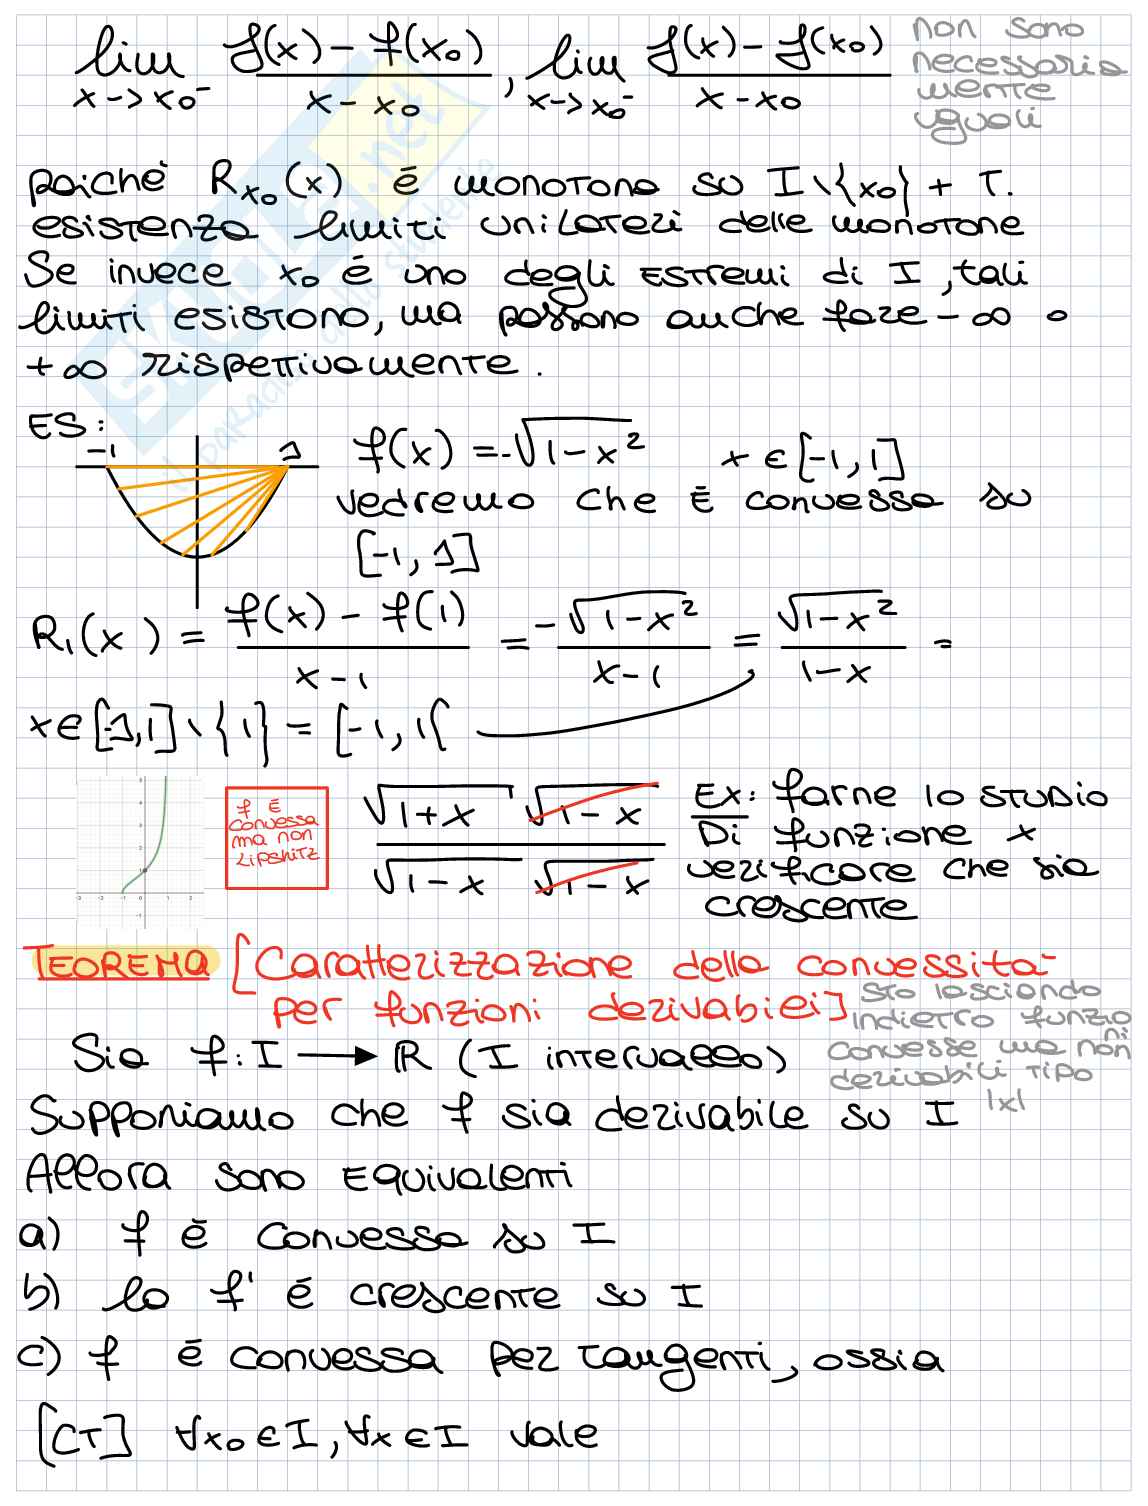 lim x->x0⁻ f(x) - f(x0) / x - x0 , lim x->x0⁻ f(x) - f(x0) / x - x0
non sono
necessaria
mente
uguali
poiché R_x0(x) é monotona su I\{x0} + T.
esistenza limiti unilaterli delle monotone
Se invece x0 é uno degli estremi di I, tali
limiti esistono, ma possono anche fare -∞ o
+∞ rispettivamente.
ES:
-1 1
f(x) = -√(1-x²) x ∈ [-1,1]
vedremo che É convessa su
[-1, 1]
R₁(x) = f(x) - f(1) / x-1 = -√(1-x²) / x-1 = √(1-x²) / 1-x =
x ∈ [-1,1] \ {1} = [-1,1[
f É
convessa
ma non
Lipshitz
√(1+x) √(1-x) / √(1-x) √(1-x)
Ex: farne lo studio
Di funzione x
verificare che sia
crescente
TEOREMA [Caratterizzazione della convessità
per funzioni derivabili]
Sto lasciando
indietro funzio
ni
convesse ma non
derivabili tipo
|x|
Sia f: I → ℝ (I intervallo)
Supponiamo che f sia derivabile su I
Allora sono equivalenti
a) f é convessa su I
b) la f' é crescente su I
c) f é convessa per tangenti, ossia
[CT] ∀x0 ∈ I, ∀x ∈ I vale